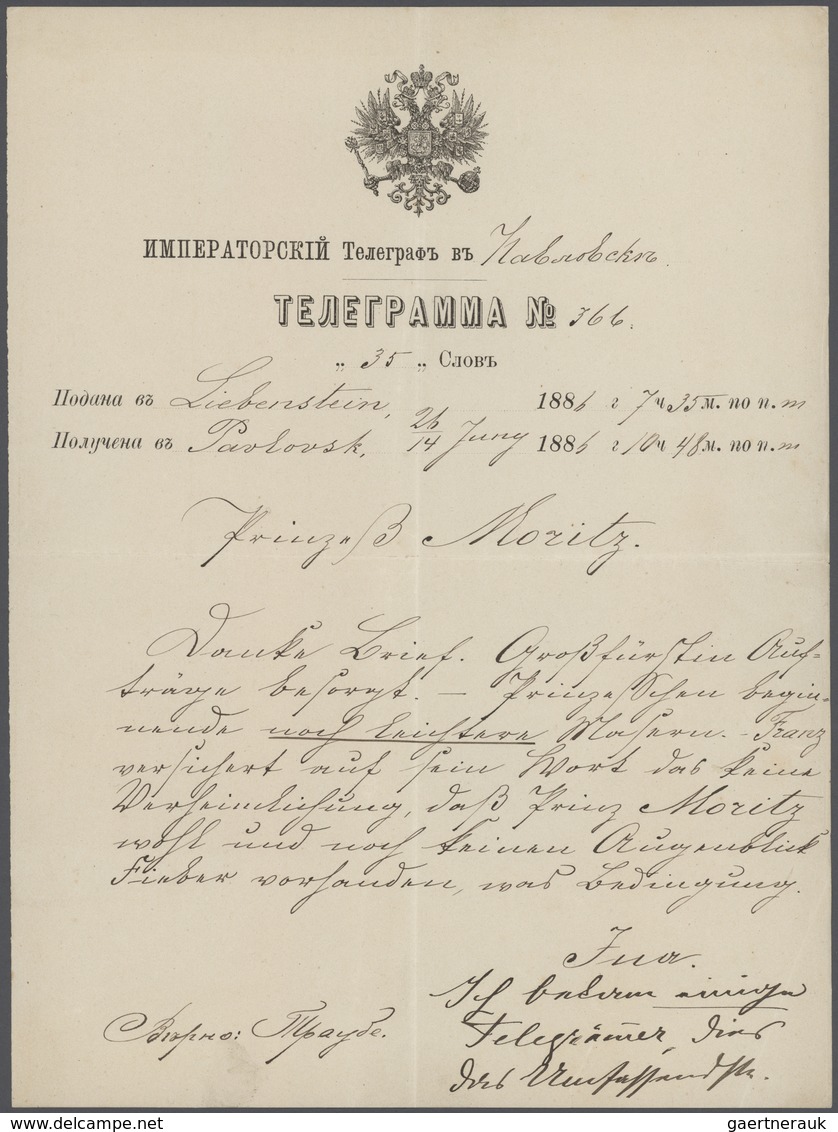 ИМПЕРАТОРСКІЙ Телеграфъ въ Павловскѣ.
ТЕЛЕГРАММА № 366.
„ 35 „ Словъ
Подана въ Liebenstein, 1886 г 7 ч 35 м. по п. m
Получена въ Pavlovsk, 26/14 Juny 1886 г 10 ч 48 м. по п. m
Prinzeß Moritz.
Danke Brief. Großfürstin Auf-
träge besorgt. — Prinzesschen begin-
nende noch leichtere Masern. - Franz
versichert auf sein Wort das keine
Verheimlichung, daß Prinz Moritz
wohl und noch keinen Augenblick
Fieber vorhanden, was Bedingung.
Ina.
Ich bekam einige
Telegrämer, dies
das Umfassendste.
Вѣрно: Траубе.
gaertnerauk